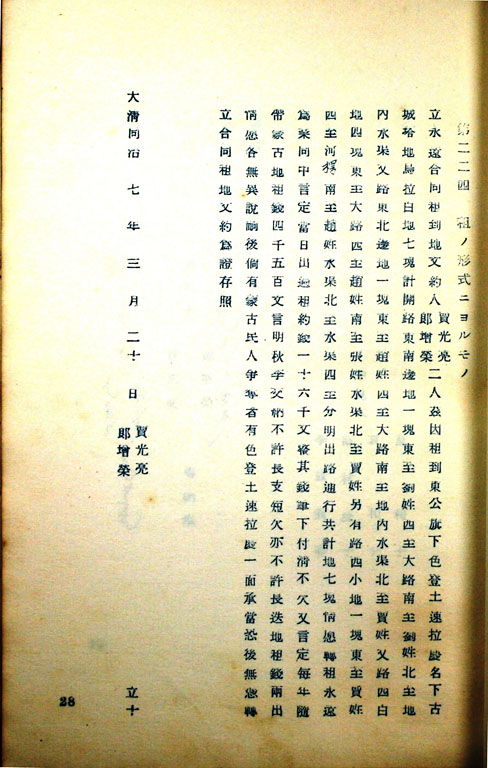 第二二四 租ノ形式ニヨルモノ
立永遠合同租到地文約人賈光亮郎增榮二人茲因租到東公旗下色登土速拉處名下古
城咯地烏拉白地七塊計開路東南邊地一塊東至劉姓西至大路南至劉姓北至地
內水渠又路東北邊地一塊東至趙姓西至大路南至地內水渠北至賈姓又路西白
地四塊東至大路西至趙姓南至張姓水渠北至賈姓另有路西小地一塊東至賈姓
西至河槽南至趙姓水渠北至水渠四至分明出路通行共計地七塊情愿轉租永遠
爲業同中言定當日出過租約錢一十六千文整其錢筆下付清不欠又言定每年隨
帶蒙古地租錢四千五百文言明秋季交納不許長支短欠亦不許長迭地租錢兩出
情愿各無異說嗣後倘有蒙古民人爭奪者有色登土速拉處一面承當恐後無憑轉
立合同租地文約爲證存照
大清同治七年三月二十日 賈光亮郎增榮 立十
28